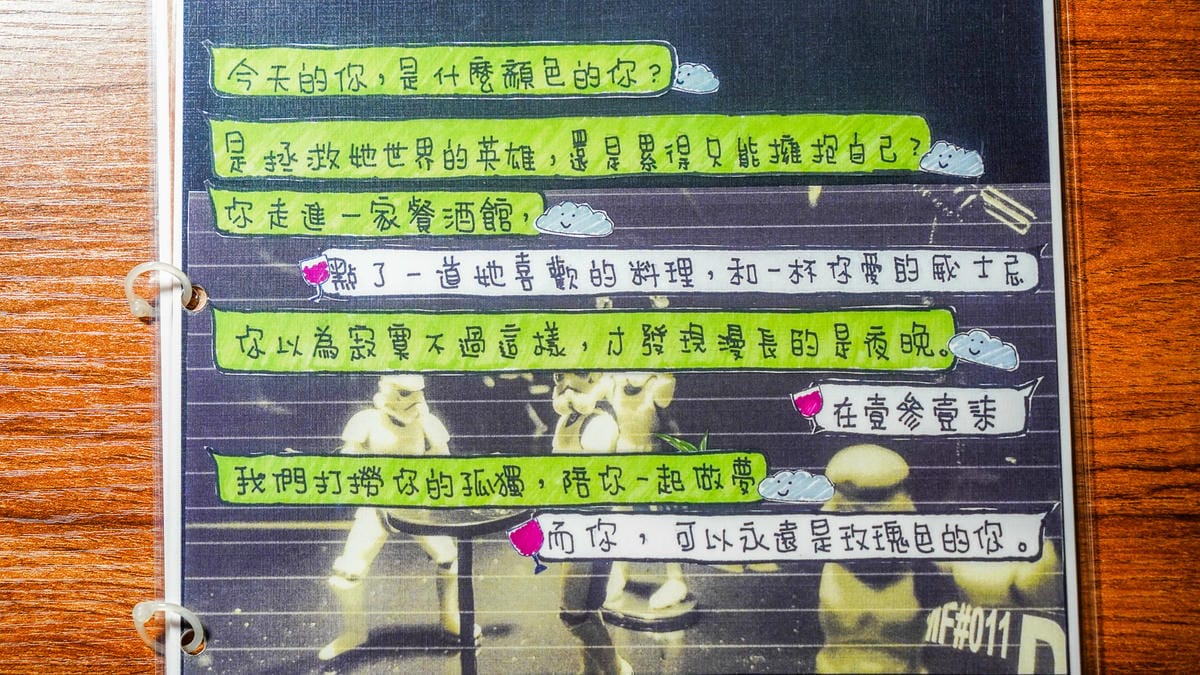 今天的你，是什麼顏色的你？
是拯救她世界的英雄，還是累得只能擁抱自己？
你走進一家餐酒館，
點了一道她喜歡的料理，和一杯你愛的威士忌
你以為寂寞不過這樣，才發現漫長的是夜晚。
在壹參壹柒
我們打撈你的孤獨，陪你一起做夢
而你，可以永遠是玫瑰色的你。
#011